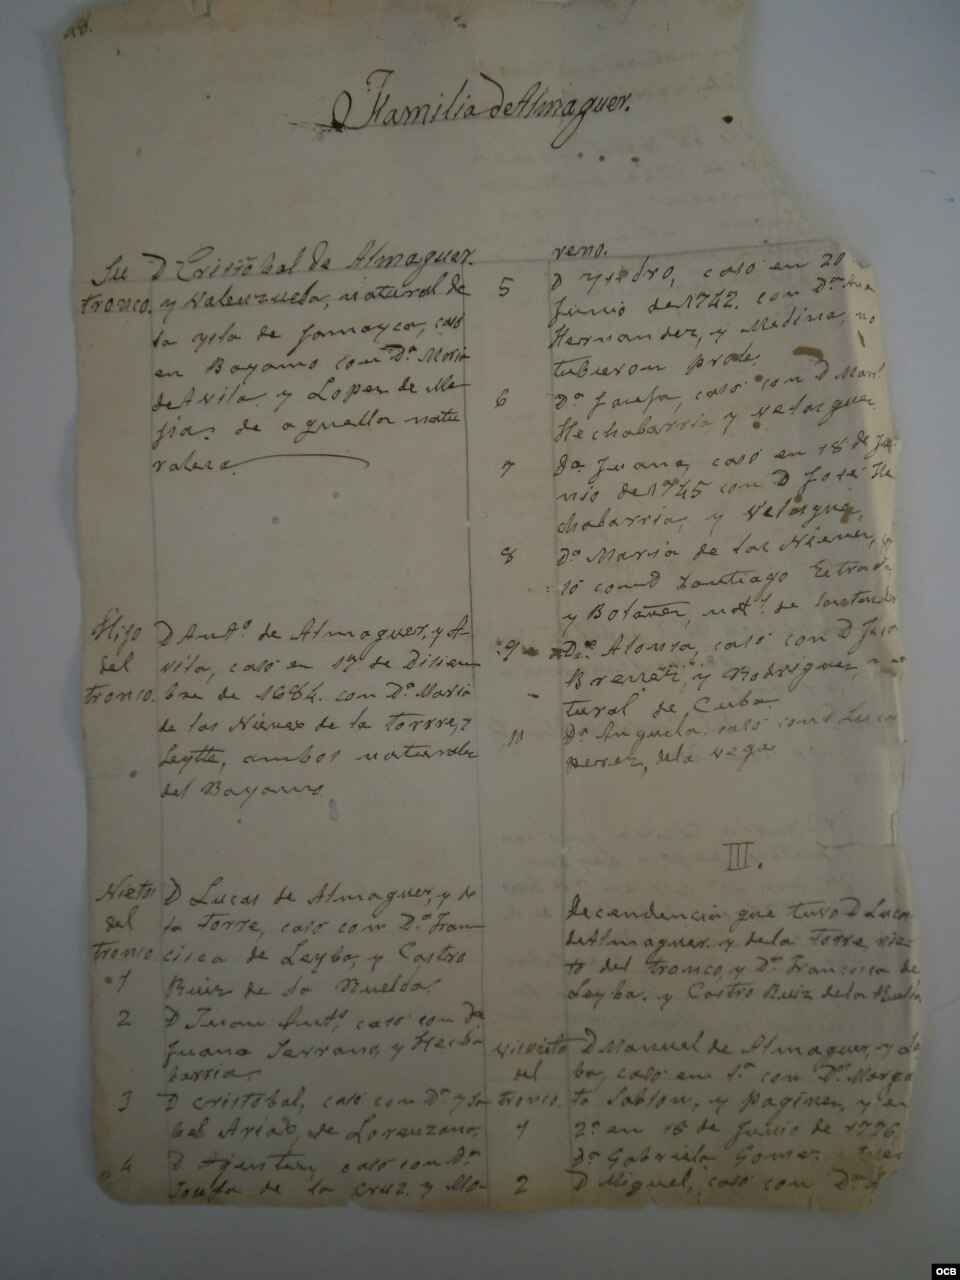 98.
Familia de Almaguer.
Su D Cristobal de Almaguer.
tronco. y Valenzuela, natural de
la ysla de Jamayca, casó
en Bayamo con Dª Maria
de Avila y Lopez de Me-
jia, de aquella natu
raleza
Hijo D Antº de Almaguer, y A-
del vila, casó en 17 de Diciem
tronco. bre de 1684. con Dª Maria
de las Nieves de la Torrre, y
Leytte, ambos naturales
del Bayamo
Nieto D Lucas de Almaguer, y de
del la Torre, casó con Dª Fran-
tronco. cisca de Leyba, y Castro
1 Ruiz de la Ruelda.
2 D Juan Antº, casó con Dª
Juana Serrano, y Hecha
barria.
3 D cristobal, casó con Dª ysa
bel Ariaò, de Lorenzana.
4 D Agustin, casó con Dª
Josefa de la Cruz. y Mo-
reno.
5 D Ysidro, casó en 20
Junio de 1742. con Dª Ana
Hernandez, y Medina, no
tubieron prole,
6 Dª Josefa, casó con D Manl
Hechabarria y Velasquez
7 Dª Juana, casó en 18 de Ju
nio de 1745 con D José He
chabarria, y Velasquez,
8 Dª Maria de las Nieves, ca
só con D Santiago Estrada
y Bolañez, natl. de Santander
9 Dª Alonsa, casó con D Juan
y Rodriguez, na
tural de Cuba.
11 Dª Anguela, casó con D Lucas
perez, dela vega
III.
Decendencia que tuvo D Lucas
de Almaguer. y de la Torre nie-
to del tronco, y Dª Francisca de
Leyba. y Castro Ruiz de la Ruelda
Visnieto D Manuel de Almaguer, y Le
del ba, casó en 1ª con Dª Marga
tronco. ta Sablon, y Paginez, y en
1 2ª en 15 de Junio de 1776,
Dª Gabriela Gomez.
2 D Miguel, casó con Dª
OCB